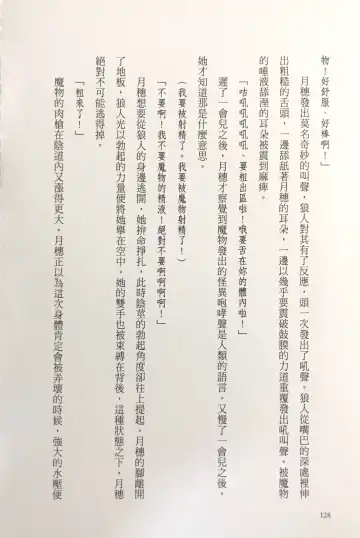 物！好舒服、好棒啊！」
月穗發出莫名奇妙的叫聲，狼人對其有了反應，頭一次發出了吼聲。狼人從嘴巴的深處裡伸
出粗糙的舌頭，一邊舔舐著月穗的耳朵，一邊以幾乎要震破鼓膜的力道重覆發出吼叫聲。被魔物
的唾液舔溼的耳朵被震到麻痺。
「咕吼吼吼吼吼、要粗出區啦！哦要舌在妳的體內啦！」
遲了一會兒之後，月穗才察覺到魔物發出的怪異咆哮聲是人類的語言。又慢了一會兒之後，
她才知道那是什麼意思。
（我要被射精了。我要被魔物射精了！）
「不要啊！我不要魔物的精液！絕對不要啊啊啊啊！」
月穗想要從狼人的身邊逃開，她拚命掙扎，此時陰莖的勃起角度卻往上提起。月穗的腳離開
了地板，狼人光以勃起的力量便將她舉在空中，她的雙手也被束縛在背後，這種狀態之下，月穗
絕對不可能逃得掉。
「粗來了！」
魔物的肉槍在陰道內又漲得更大。月穗正以為這次身體肯定會被弄壞的時候，強大的水壓便
128